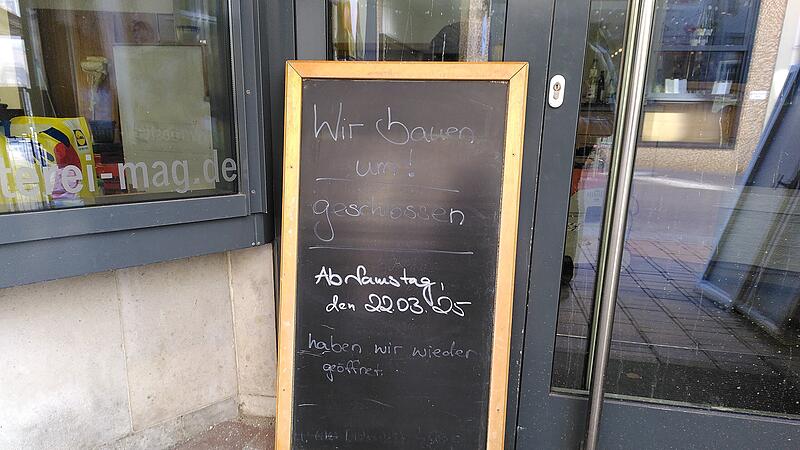 terei-mag.de
Wir bauen
um!
geschlossen
Ab Samstag,
den 22.03.25
haben wir wieder
geöffnet.